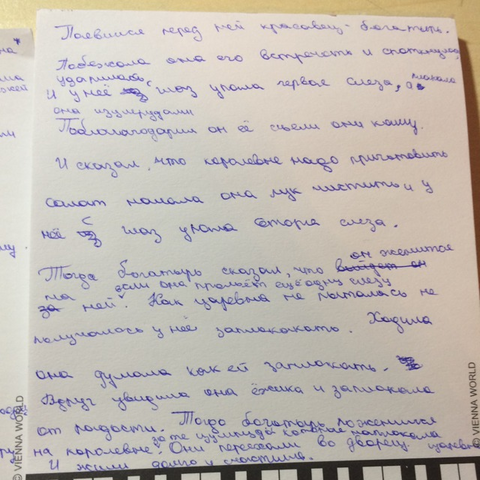 Поевился перед ней красавец-богатырь.
Побежала она его встречать и споткнулась
ударилась,
И у неё с глаз упала первая слеза, плакала
она изумрудами
Поблагодарил он её съели они кашу.
И сказал, что королевне надо приготовить
салат начала она лук чистить и у
неё с глаз упала вторая слеза.
он женится
Тогда богатырь сказал, что
если она прольёт ещё одну слезу
на ней. Как царевна не пыталась не
получалось у неё заплакать. Ходила
она думала как ей заплакать.
Вдруг увидила она ёжика и заплакала
от радости. Тогда богатырь поженился
за те изумруды которые наплакала
на королевне. Они переехали во дворец царевна
И жили долго и счастливо.
© VIENNA WORLD
© VIENNA WORLD